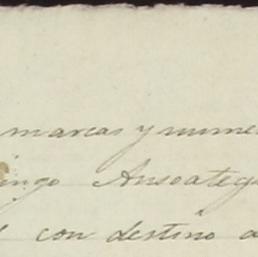 marcas y nume
ingo Ansoateg
con destino a